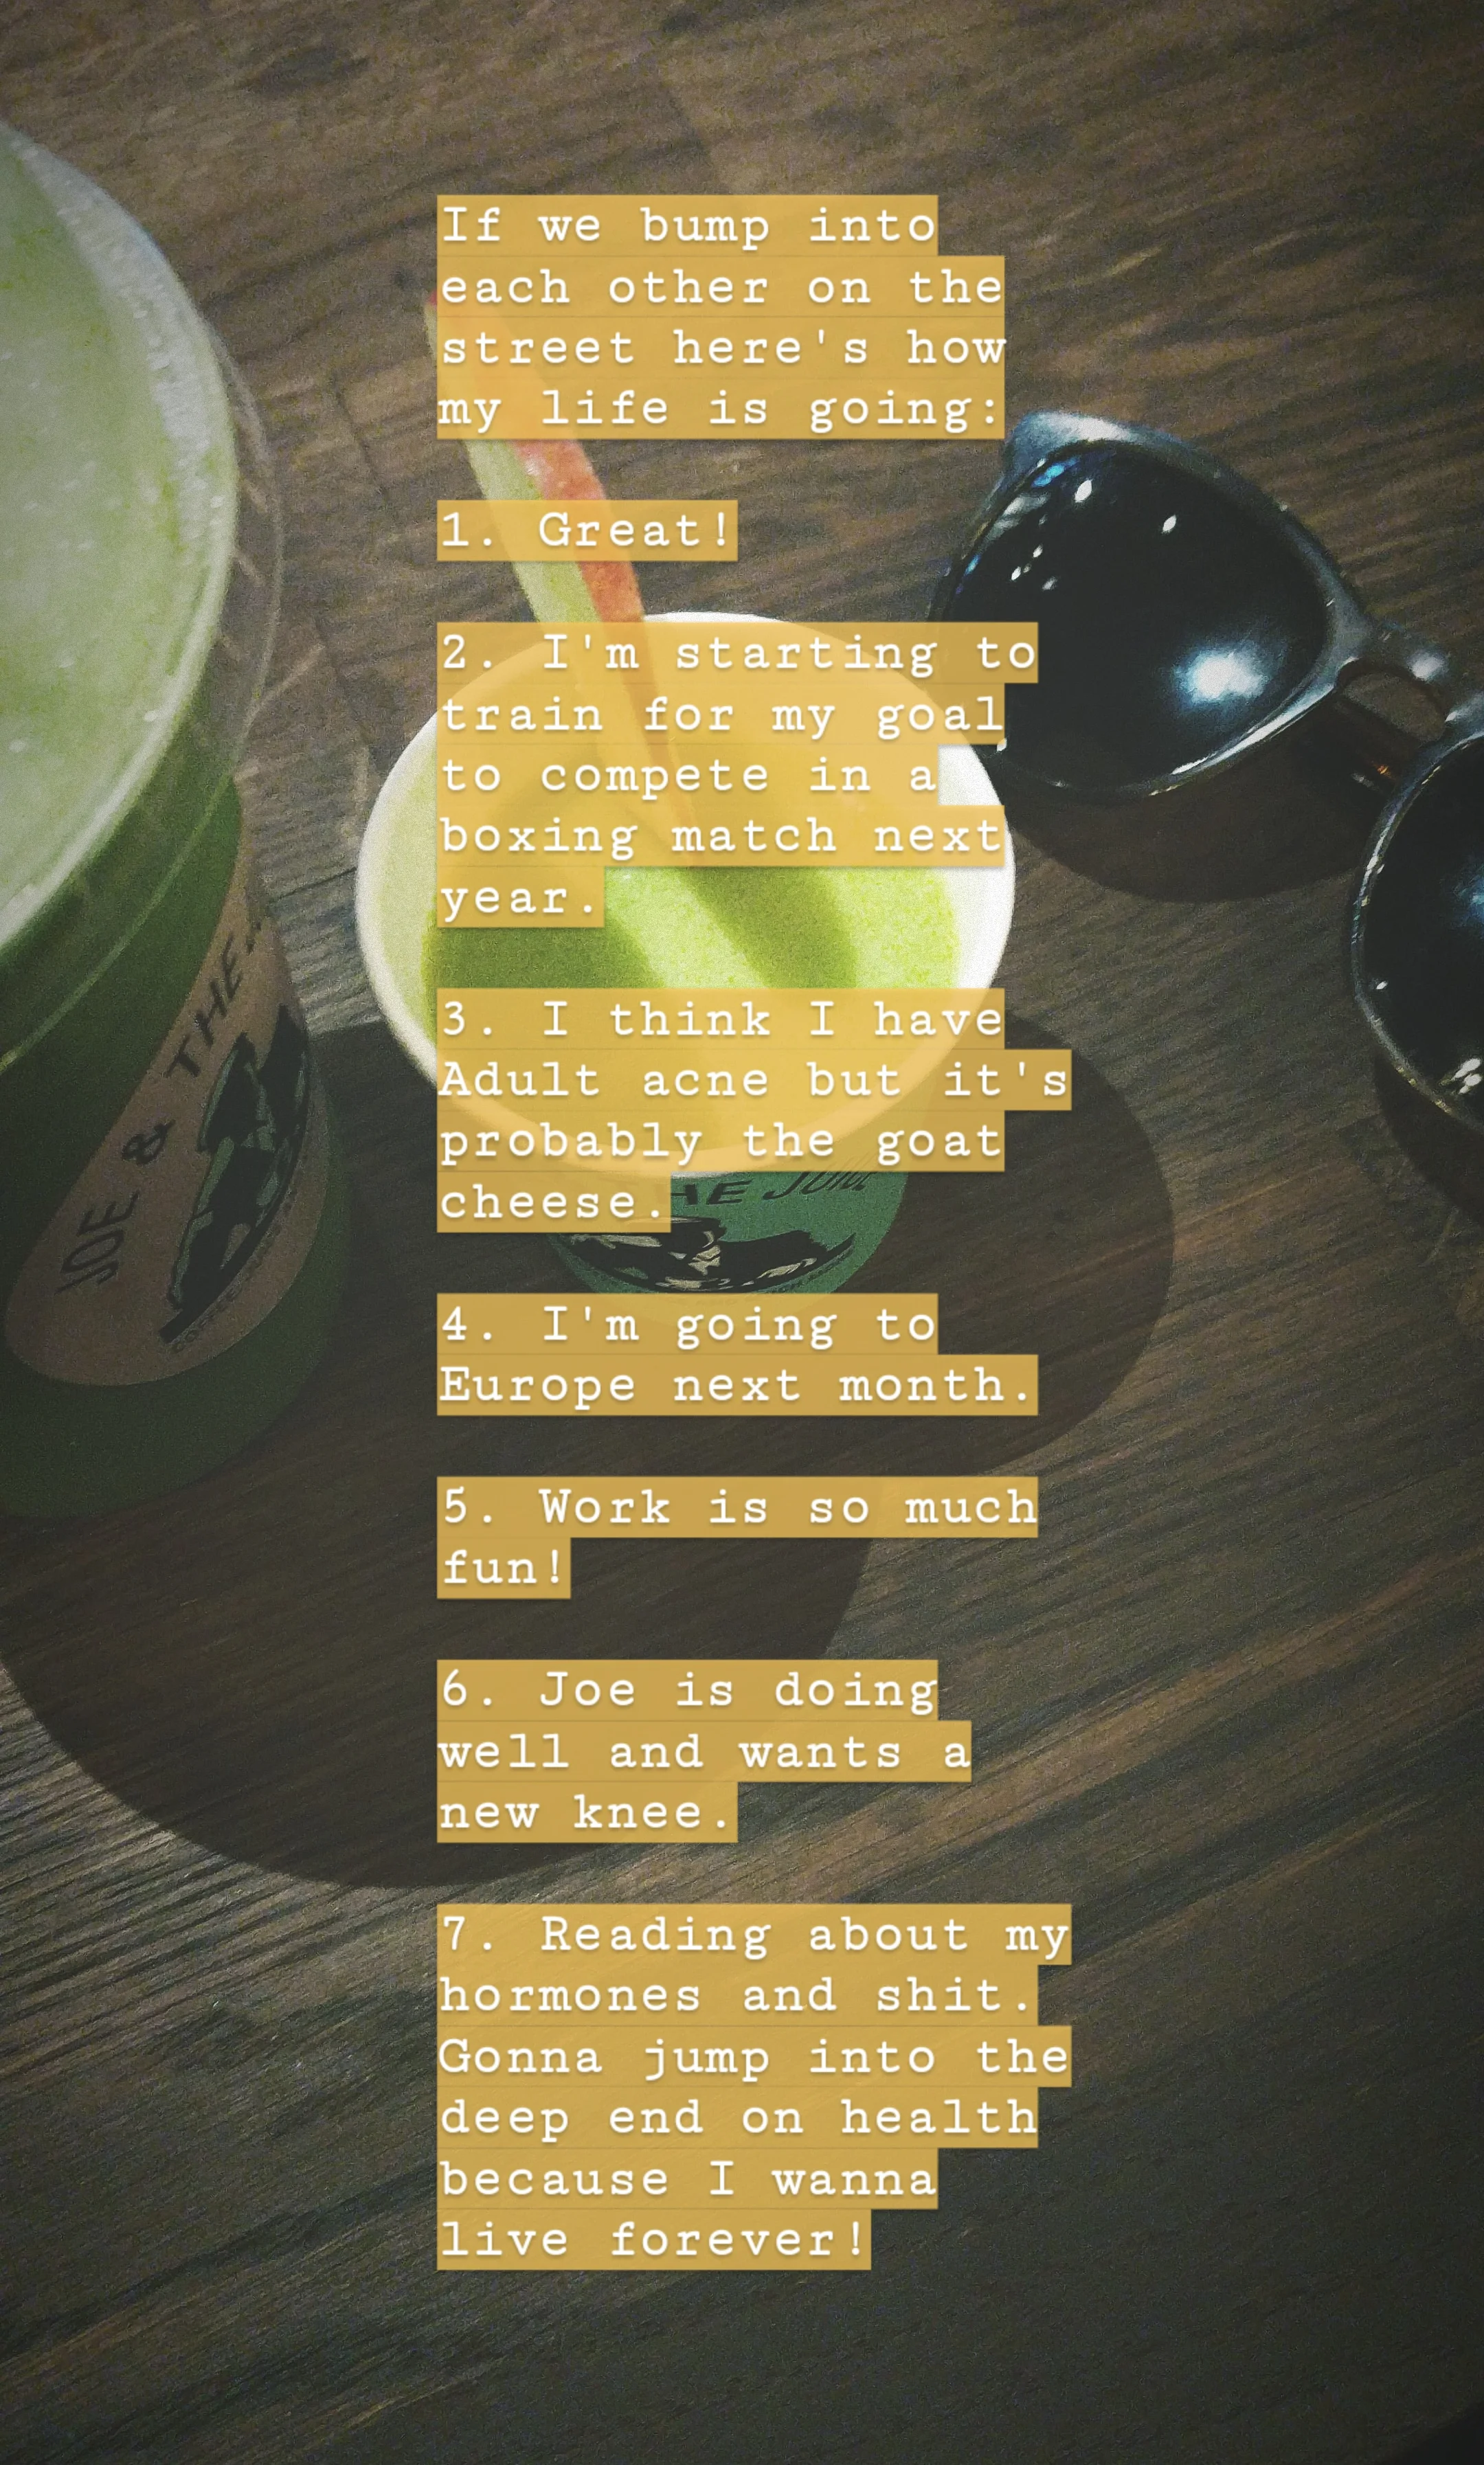 If we bump into
each other on the
street here's how
my life is going:
1. Great!
2. I'm starting to
train for my goal
to compete in a
boxing match next
year.
3. I think I have
Adult acne but it's
probably the goat
cheese.
4. I'm going to
Europe next month.
5. Work is so much
fun!
6. Joe is doing
well and wants a
new knee.
7. Reading about my
hormones and shit.
Gonna jump into the
deep end on health
because I wanna
live forever!
JOE & THE
HE JUICE